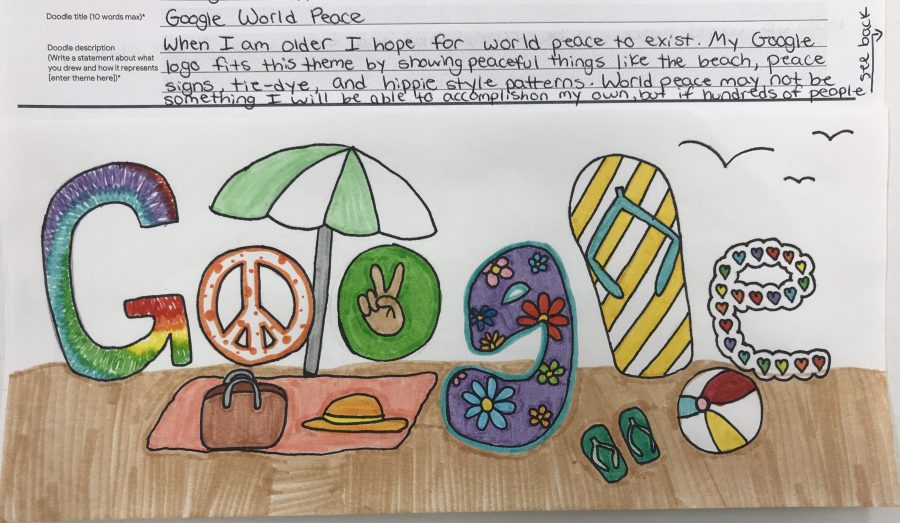 Doodle title (10 words max)*
Google World Peace
Doodle description
(Write a statement about what
you drew and how it represents
[enter theme here])*
When I am older I hope for world peace to exist. My Google
logo fits this theme by showing peaceful things like the beach, peace
signs, tie-dye, and hippie style patterns. World peace may not be
something I will be able to accomplish on my own, but if hundreds of people
see back
Google